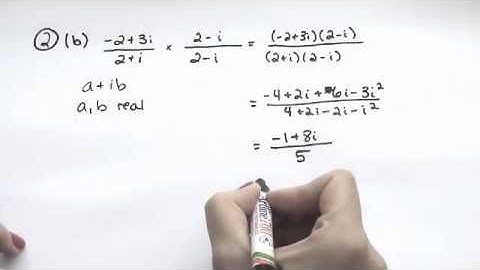 ② (b) (-2+3i)/(2+i) × (2-i)/(2-i) = ((-2+3i)(2-i))/((2+i)(2-i))
a+ib
a,b real
= (-4+2i+6i-3i²)/(4+2i-2i-i²)
= (-1+8i)/5